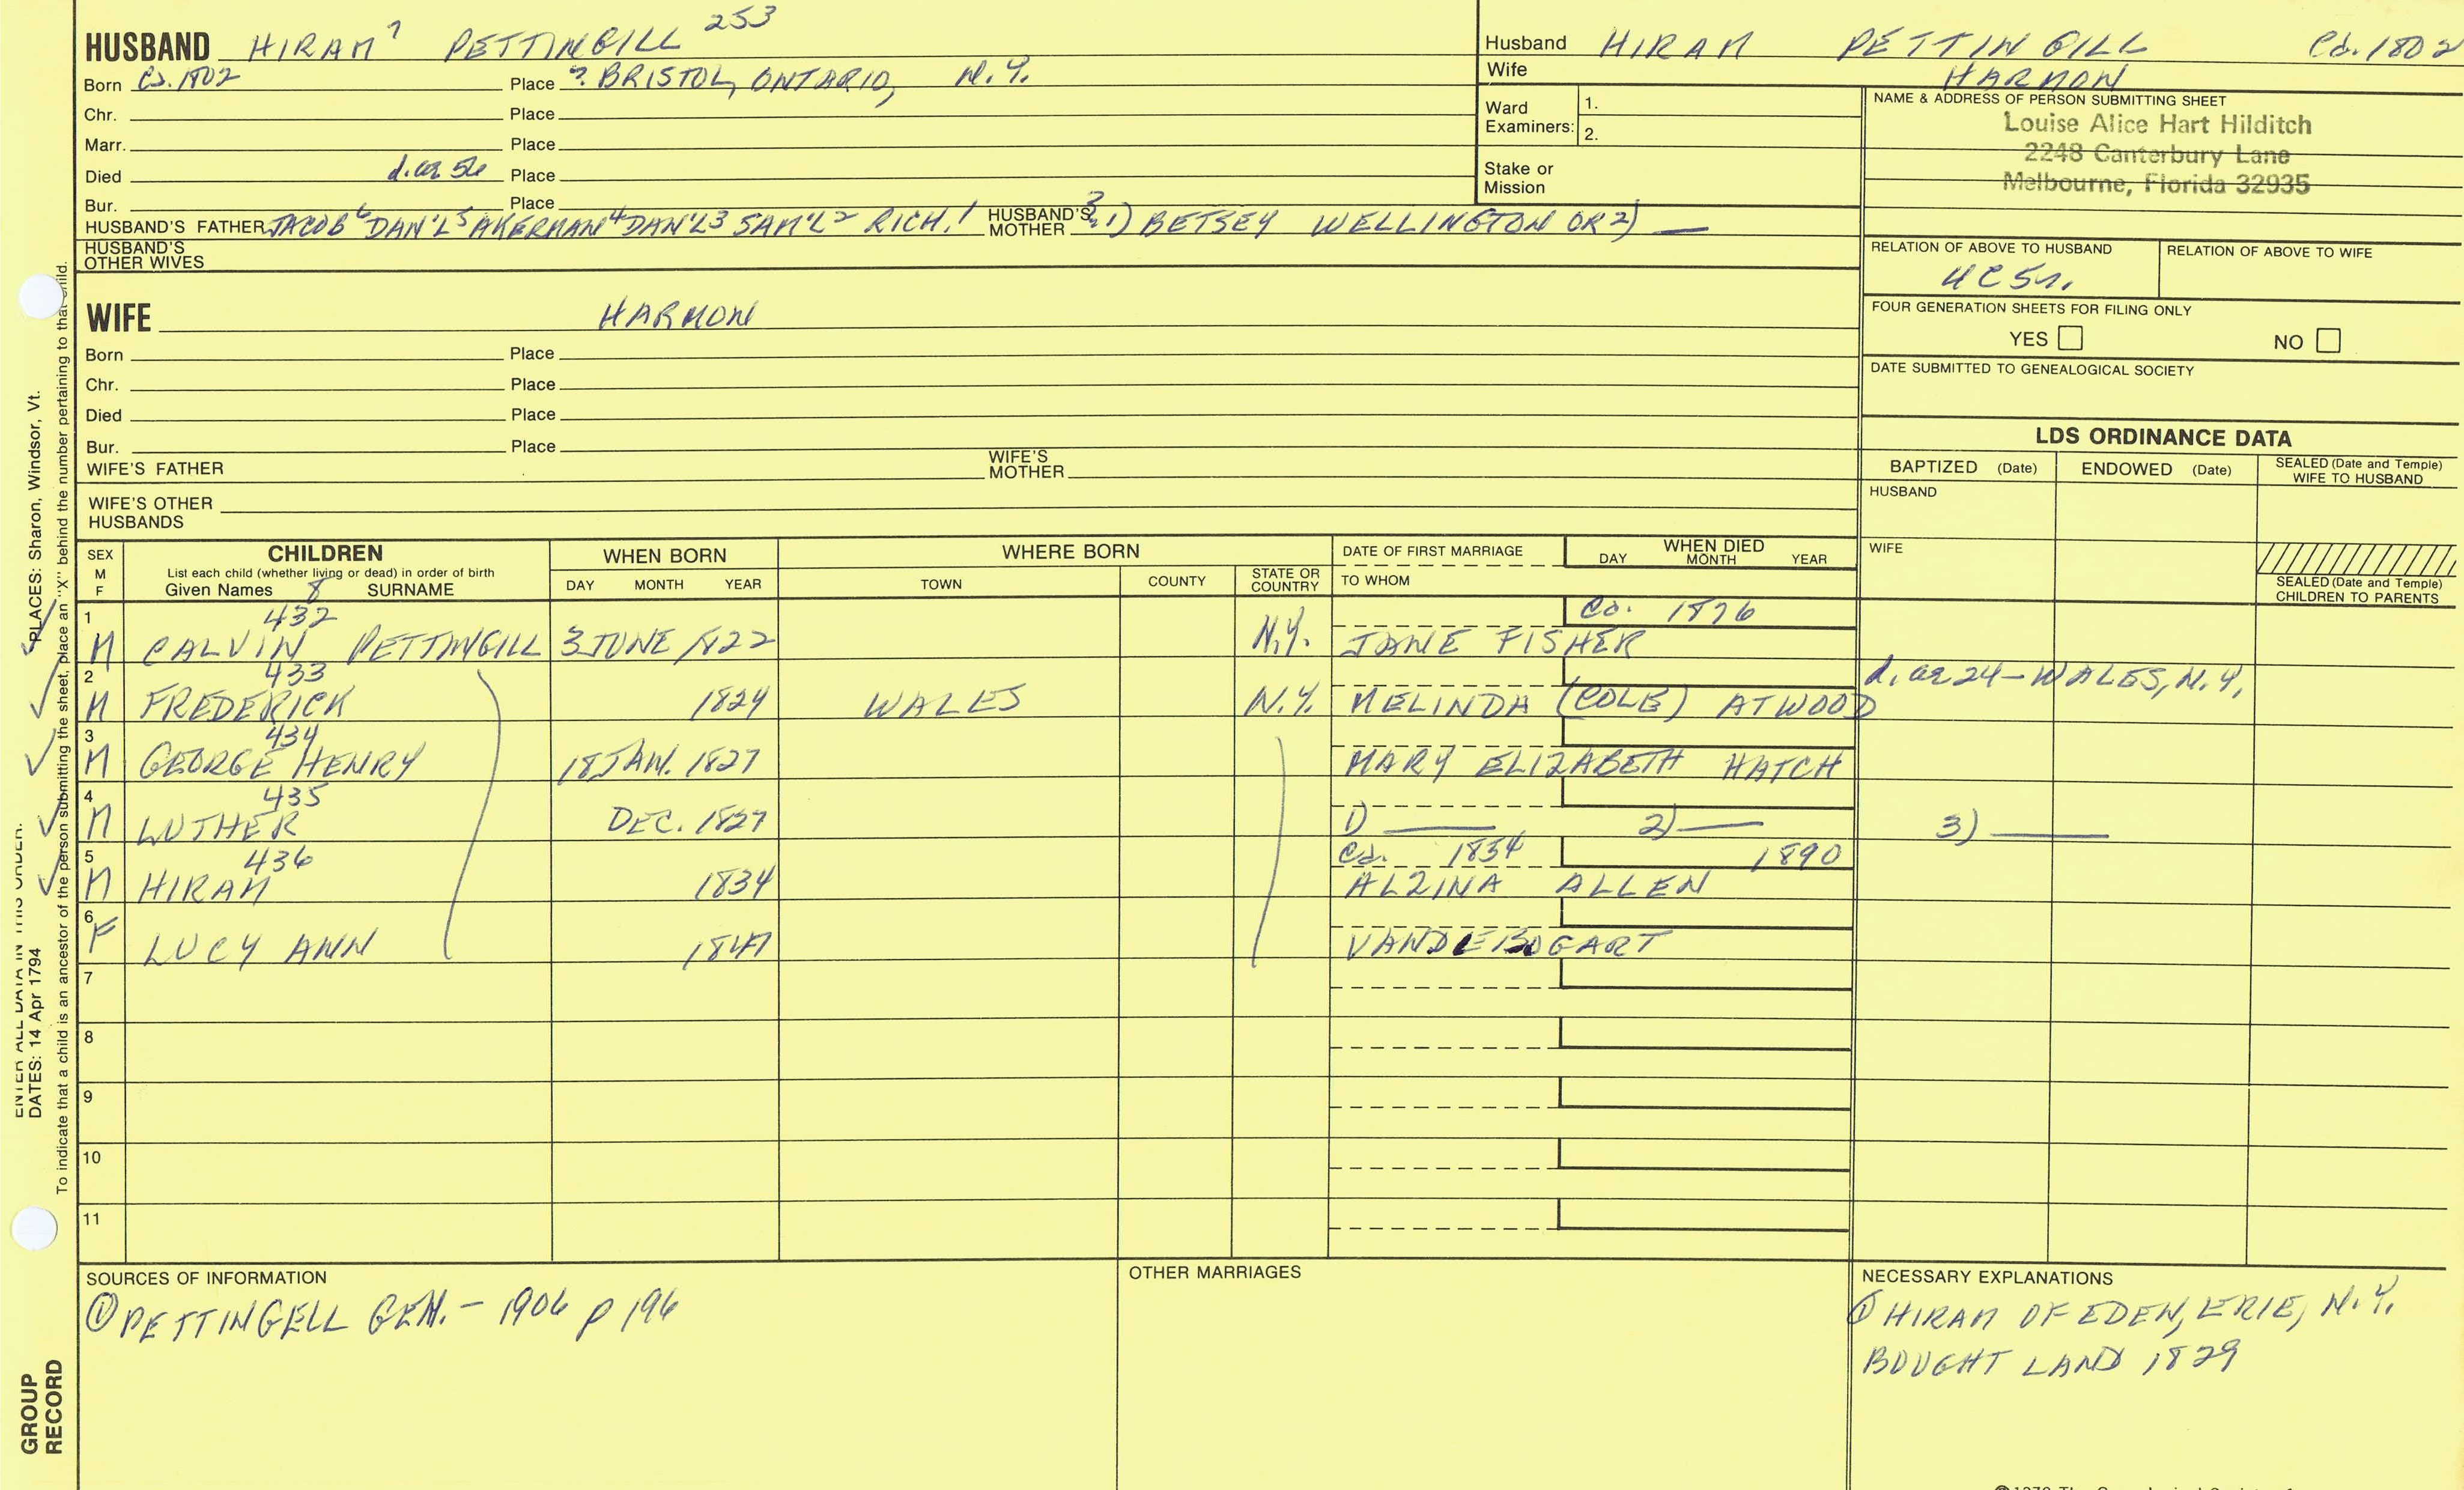 HUSBAND HIRAM 7 PETTINGILL 253
Born Ca. 1802 Place ? BRISTOL, ONTARIO, N.Y.
Chr. Place
Marr. Place
Died d. ae 56 Place
Bur. Place
HUSBAND'S FATHER JACOB 6 DAN'L 5 AKERMAN 4 DAN'L 3 SAM'L 2 RICH. 1 HUSBAND'S MOTHER ? 1) BETSEY WELLINGTON OR 2) —
HUSBAND'S OTHER WIVES
Husband HIRAM PETTINGILL Ca. 1802
Wife HARMON
Ward Examiners: 1.
2.
Stake or Mission
NAME & ADDRESS OF PERSON SUBMITTING SHEET
Louise Alice Hart Hilditch
2248 Canterbury Lane
Melbourne, Florida 32935
RELATION OF ABOVE TO HUSBAND RELATION OF ABOVE TO WIFE
4C5r.
FOUR GENERATION SHEETS FOR FILING ONLY
YES NO
DATE SUBMITTED TO GENEALOGICAL SOCIETY
WIFE HARMON
Born Place
Chr. Place
Died Place
Bur. Place
WIFE'S FATHER WIFE'S MOTHER
WIFE'S OTHER HUSBANDS
LDS ORDINANCE DATA
BAPTIZED (Date) ENDOWED (Date) SEALED (Date and Temple) WIFE TO HUSBAND
HUSBAND
WIFE
SEALED (Date and Temple) CHILDREN TO PARENTS
SEX M F CHILDREN
List each child (whether living or dead) in order of birth
Given Names 8 SURNAME
WHEN BORN
DAY MONTH YEAR
WHERE BORN
TOWN COUNTY STATE OR COUNTRY
DATE OF FIRST MARRIAGE
TO WHOM
WHEN DIED
DAY MONTH YEAR
1 432 Ca. 1876
M CALVIN PETTINGILL 3 JUNE 1822 N.Y. JANE FISHER
2 433 d. ae 24 — WALES, N.Y.
M FREDERICK 1824 WALES N.Y. MELINDA (COLE) ATWOOD
3 434
M GEORGE HENRY 18 JAN. 1827 MARY ELIZABETH HATCH
4 435
M LUTHER DEC. 1827 1) — 2) — 3) —
5 436 Ca. 1854 1890
M HIRAM 1834 ALZINA ALLEN
6
F LUCY ANN 1841 VANDEBOGART
7
8
9
10
11
SOURCES OF INFORMATION
① PETTINGELL GEN. - 1906 p 196
OTHER MARRIAGES
NECESSARY EXPLANATIONS
① HIRAM OF EDEN, ERIE, N.Y.
BOUGHT LAND 1829
ENTER ALL DATA IN THIS ORDER:
DATES: 14 Apr 1794
PLACES: Sharon, Windsor, Vt.
To indicate that a child is an ancestor of the person submitting the sheet, place an "X" behind the number pertaining to that child.
GROUP RECORD